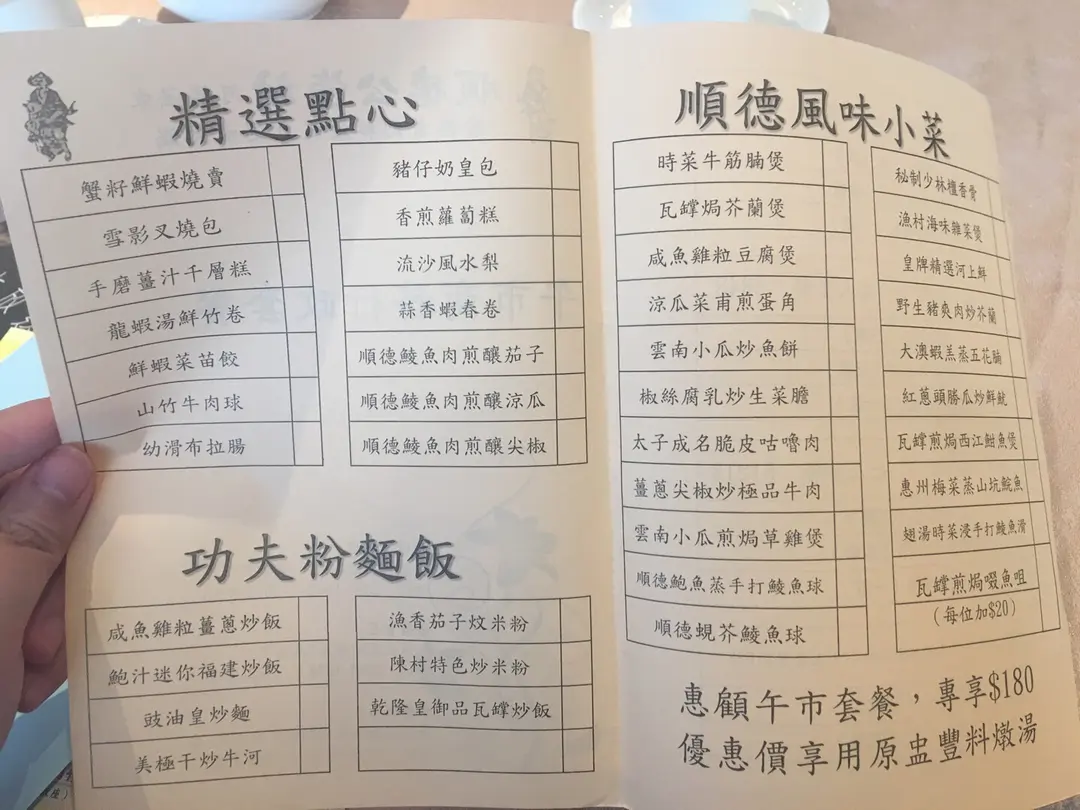 精選點心
蟹籽鮮蝦燒賣
雪影叉燒包
手磨薑汁千層糕
龍蝦湯鮮竹卷
鮮蝦菜苗餃
山竹牛肉球
幼滑布拉腸
豬仔奶皇包
香煎蘿蔔糕
流沙風水梨
蒜香蝦春卷
順德鯪魚肉煎釀茄子
順德鯪魚肉煎釀涼瓜
順德鯪魚肉煎釀尖椒
功夫粉麵飯
咸魚雞粒薑蔥炒飯
鮑汁迷你福建炒飯
豉油皇炒麵
美極干炒牛河
漁香茄子炆米粉
陳村特色炒米粉
乾隆皇御品瓦罉炒飯
順德風味小菜
時菜牛筋腩煲
瓦罉焗芥蘭煲
咸魚雞粒豆腐煲
涼瓜菜甫煎蛋角
雲南小瓜炒魚餅
椒絲腐乳炒生菜膽
太子成名脆皮咕嚕肉
薑蔥尖椒炒極品牛肉
雲南小瓜煎焗草雞煲
順德鮑魚蒸手打鯪魚球
順德蜆芥鯪魚球
秘制少林檀香骨
漁村海味雜菜煲
皇牌精選河上鮮
野生豬爽肉炒芥蘭
大澳蝦羔蒸五花腩
紅蔥頭勝瓜炒鮮魷
瓦罉煎焗西江鮋魚煲
惠州梅菜蒸山坑鯇魚
翅湯時菜浸手打鯪魚滑
瓦罉煎焗啜魚咀
(每位加$20)
惠顧午市套餐，專享$180
優惠價享用原盅豐料燉湯